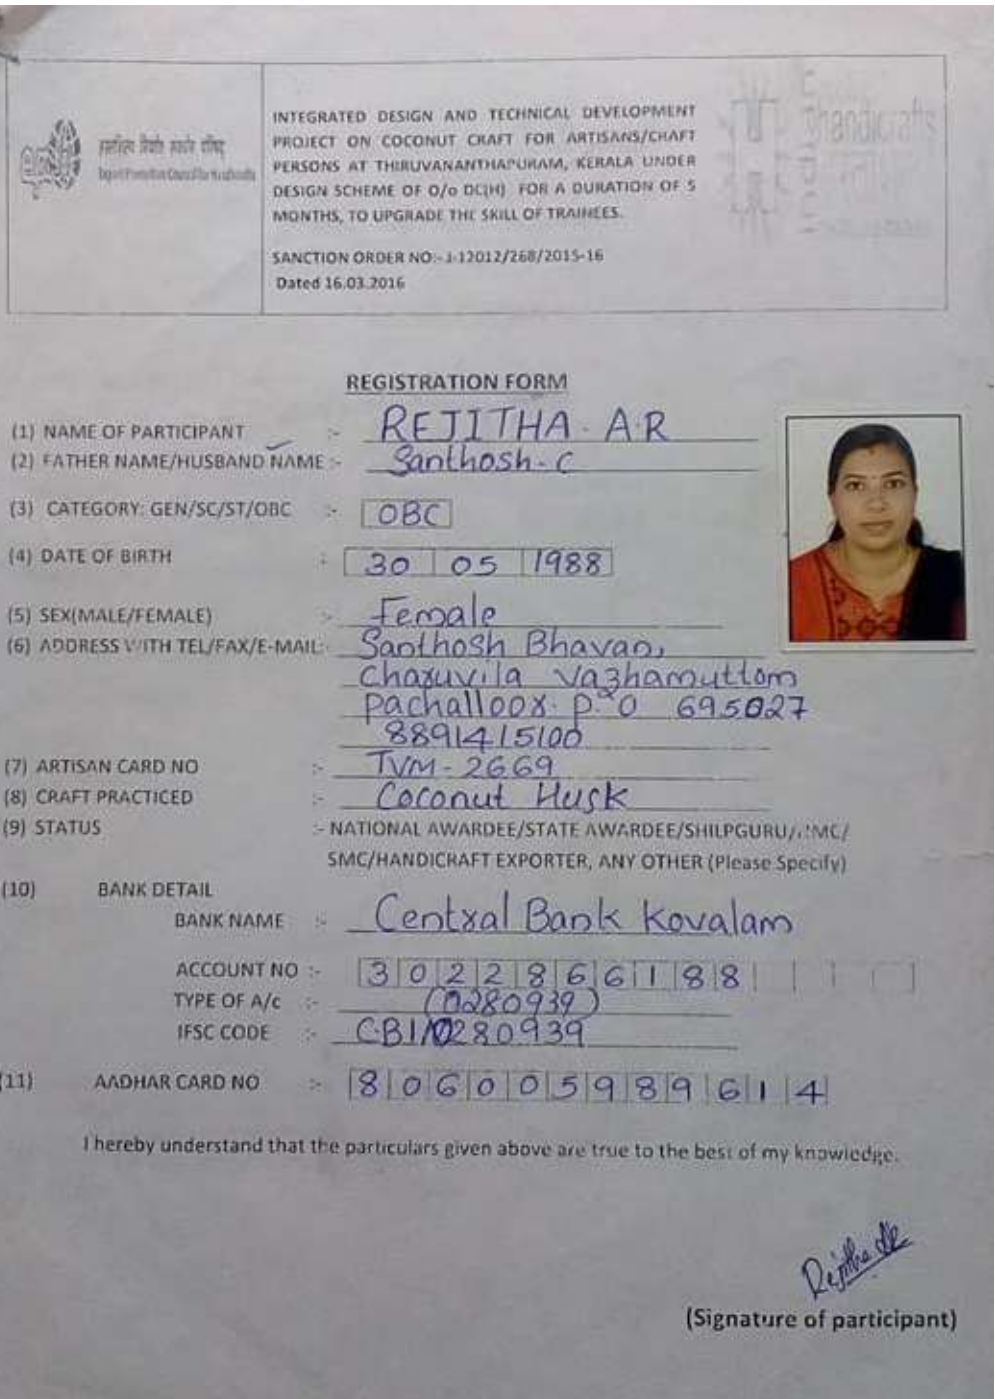 हस्तशिल्प निर्यात संवर्धन परिषद्
Export Promotion Council for Handicrafts
INTEGRATED DESIGN AND TECHNICAL DEVELOPMENT
PROJECT ON COCONUT CRAFT FOR ARTISANS/CRAFT
PERSONS AT THIRUVANANTHAPURAM, KERALA UNDER
DESIGN SCHEME OF O/o DC(H) FOR A DURATION OF 5
MONTHS, TO UPGRADE THE SKILL OF TRAINEES.
SANCTION ORDER NO:- J-12012/268/2015-16
Dated 16.03.2016
handicrafts
REGISTRATION FORM
(1) NAME OF PARTICIPANT :- REJITHA. A.R
(2) FATHER NAME/HUSBAND NAME :- Santhosh-C
(3) CATEGORY: GEN/SC/ST/OBC :- OBC
(4) DATE OF BIRTH : 30 05 1988
(5) SEX(MALE/FEMALE) :- Female
(6) ADDRESS WITH TEL/FAX/E-MAIL:- Santhosh Bhavan,
Charuvila Vazhamuttom
Pachalloor. P.O 695027
8891415100
(7) ARTISAN CARD NO :- TVM-2669
(8) CRAFT PRACTICED :- Coconut Husk
(9) STATUS :- NATIONAL AWARDEE/STATE AWARDEE/SHILPGURU/NMC/
SMC/HANDICRAFT EXPORTER, ANY OTHER (Please Specify)
(10) BANK DETAIL
BANK NAME :- Central Bank Kovalam
ACCOUNT NO :- 3022866188
TYPE OF A/c :- (0280939)
IFSC CODE :- CBIN0280939
(11) AADHAR CARD NO :- 806005989614
I hereby understand that the particulars given above are true to the best of my knowledge.
Rejitha AR
(Signature of participant)